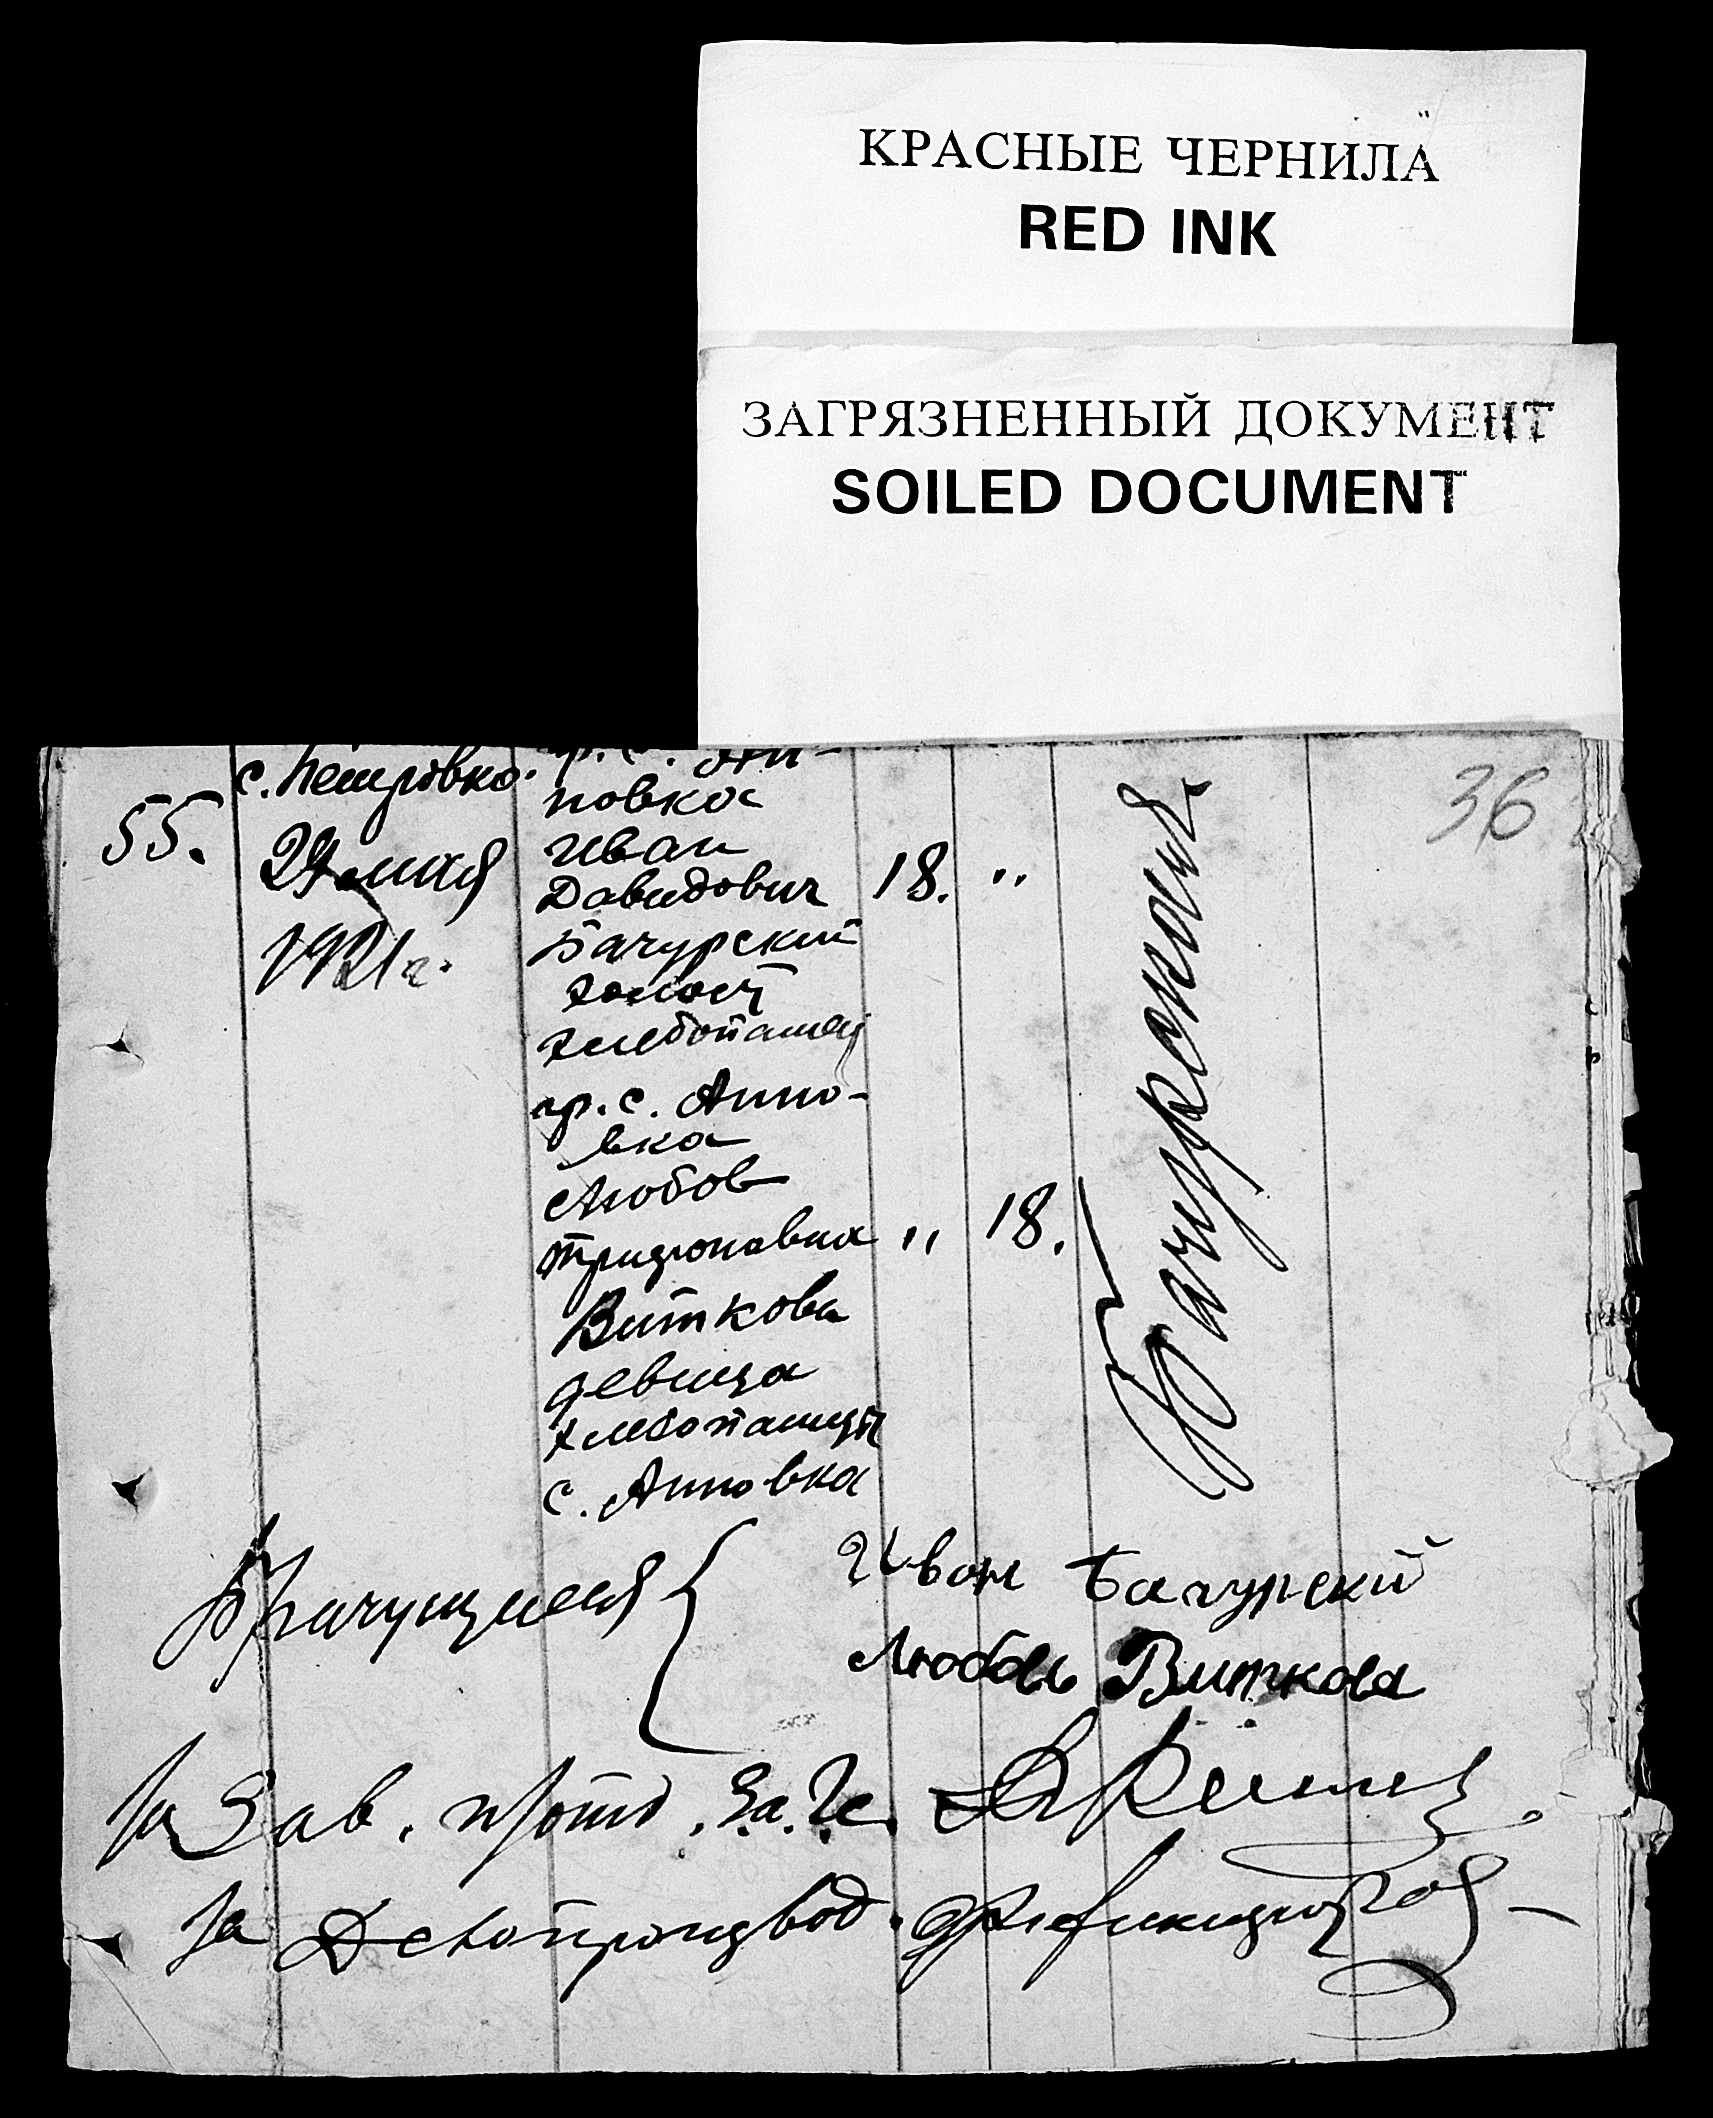 КРАСНЫЕ ЧЕРНИЛА
RED INK
ЗАГРЯЗНЕННЫЙ ДОКУМЕНТ
SOILED DOCUMENT
36
55.
с. Петровка.
29 мая
1921 г.
гр. с. Ан-
новка
Иван
Давидович
Бачурский
холост
хлебопашец
18. "
гр. с. Анно-
вка
Любов
Трифоновна
" 18.
Виткова
девица
хлебопашец
с. Анновка
Бачурская
Брачущиеся
Иван Бачурский
Любовь Виткова
За Зав. п/отд. З.а.Гс.
За Делопроизвод.